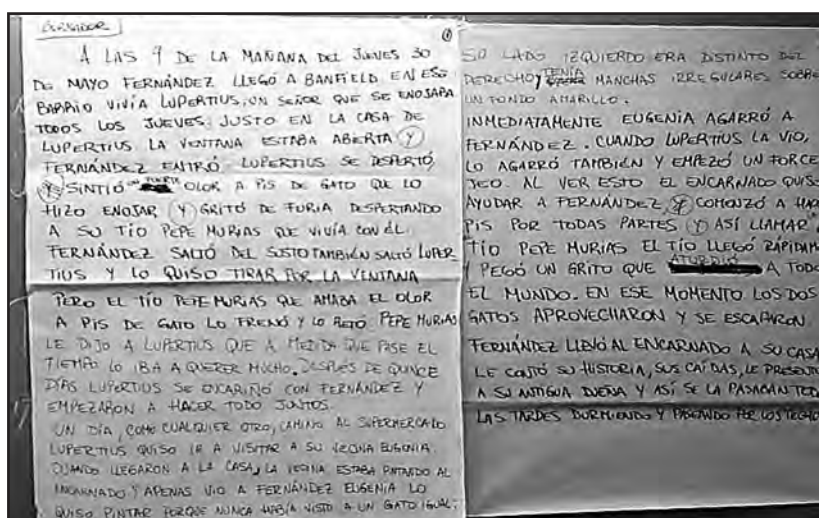 BORRADOR
①
A LAS 9 DE LA MAÑANA DEL JUEVES 30
DE MAYO FERNÁNDEZ LLEGÓ A BANFIELD. EN ESE
BARRIO VIVÍA LUPERTIUS, UN SEÑOR QUE SE ENOJABA
TODOS LOS JUEVES. JUSTO EN LA CASA DE
LUPERTIUS LA VENTANA ESTABA ABIERTA Y
FERNÁNDEZ ENTRÓ. LUPERTIUS SE DESPERTÓ,
Y SINTIÓ UN FUERTE OLOR A PIS DE GATO QUE LO
HIZO ENOJAR Y GRITÓ DE FURIA DESPERTANDO
A SU TÍO PEPE MURIAS QUE VIVÍA CON ÉL.
FERNÁNDEZ SALTÓ DEL SUSTO TAMBIÉN SALTÓ LUPER
TIUS Y LO QUISO TIRAR POR LA VENTANA
PERO EL TÍO PEPE MURIAS QUE AMABA EL OLOR
A PIS DE GATO LO FRENÓ Y LO RETÓ. PEPE MURIAS
LE DIJO A LUPERTIUS QUE A MEDIDA QUE PASE EL
TIEMPO LO IBA A QUERER MUCHO. DESPUÉS DE QUINCE
DÍAS LUPERTIUS SE ENCARIÑÓ CON FERNÁNDEZ Y
EMPEZARON A HACER TODO JUNTOS.
UN DÍA, COMO CUALQUIER OTRO, CAMINO AL SUPERMERCADO
LUPERTIUS QUISO IR A VISITAR A SU VECINA EUGENIA.
CUANDO LLEGARON A LA CASA, LA VECINA ESTABA PINTANDO AL
ENCARNADO Y APENAS VIO A FERNÁNDEZ EUGENIA LO
QUISO PINTAR PORQUE NUNCA HABÍA VISTO A UN GATO IGUAL.
SU LADO IZQUIERDO ERA DISTINTO DEL
DERECHO, TENÍA MANCHAS IRREGULARES SOBRE
UN FONDO AMARILLO.
INMEDIATAMENTE EUGENIA AGARRÓ A
FERNÁNDEZ. CUANDO LUPERTIUS LA VIO,
LO AGARRÓ TAMBIÉN Y EMPEZÓ UN FORCE
JEO. AL VER ESTO EL ENCARNADO QUISO
AYUDAR A FERNÁNDEZ, Y COMENZÓ A HACER
PIS POR TODAS PARTES Y ASÍ LLAMAR A
TÍO PEPE MURIAS. EL TÍO LLEGÓ RÁPIDAM
Y PEGÓ UN GRITO QUE ATURDIÓ A TODO
EL MUNDO. EN ESE MOMENTO LOS DOS
GATOS APROVECHARON Y SE ESCAPARON
FERNÁNDEZ LLEVÓ AL ENCARNADO A SU CASA
LE CONTÓ SU HISTORIA, SUS CAÍDAS, LE PRESENTÓ
A SU ANTIGUA DUEÑA Y ASÍ SE LA PASABAN TODAS
LAS TARDES DURMIENDO Y PASEANDO POR LOS TECHOS